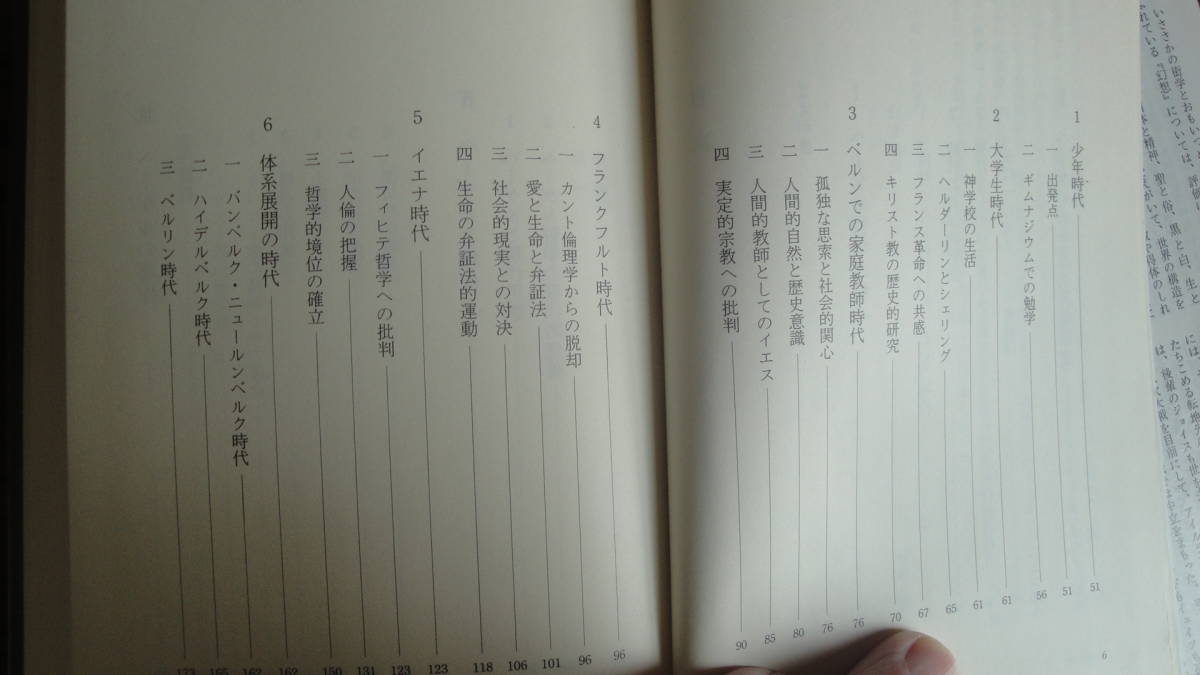 1 少年時代 51
一 出発点 51
二 ギムナジウムでの勉学 56
2 大学生時代 61
一 神学校の生活 61
二 ヘルダーリンとシェリング 65
三 フランス革命への共感 67
四 キリスト教の歴史的研究 70
3 ベルンでの家庭教師時代 76
一 孤独な思索と社会的関心 76
二 人間的自然と歴史意識 80
三 人間的教師としてのイエス 85
四 実定的宗教への批判 90
6
4 フランクフルト時代 96
一 カント倫理学からの脱却 96
二 愛と生命と弁証法 101
三 社会的現実との対決 106
四 生命の弁証法的運動 118
5 イエナ時代 123
一 フィヒテ哲学への批判 123
二 人倫の把握 131
三 哲学的境位の確立 150
6 体系展開の時代 162
一 バンベルク・ニュールンベルク時代 162
二 ハイデルベルク時代 165
三 ベルリン時代 173